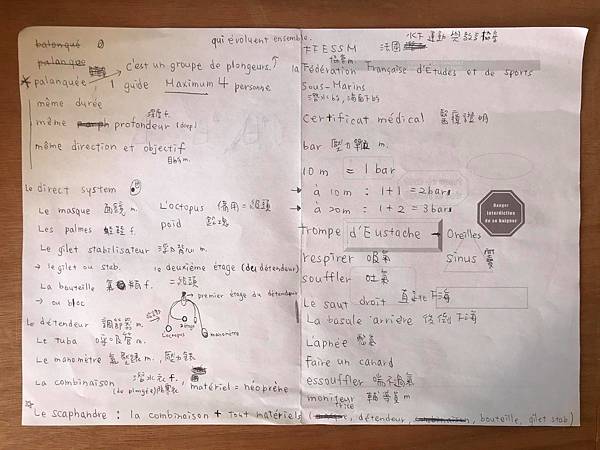 balonqué
palanque
palanquée
c'est un groupe de plongeurs.
qui évoluent ensemble.
1 guide Maximum 4 personne
même durée
même profondeur (deep)
même direction et objectif
目的 m.
le direct system
Le masque 面鏡 m. L'octopus 備用二級頭
Les palmes 蛙鞋 f. poid 鉛塊
Le gilet stabilisateur 浮力背心 m.
→ le gilet ou stab. le deuxième étage (du détendeur)
La bouteille 氣瓶 f. = 二級頭
→ ou bloc
premier étage du détendeur
Le détendeur 調節器 m.
L'octopus
manomètre
Le tuba 呼吸管 m.
Le manomètre 氣壓錶 m. 壓力錶
La combinaison 潛水衣 f. matériel = néoprène
(de plongée)
Le scaphandre : la combinaison + tout matériels (détendeur, combinaison, bouteille, gilet stab)
FFESSM 法國 水下運動與
協會 m.
la Fédération Française d'Etudes et de sports
sous-Marins
潛水的, 海面下的
certificat médical 醫療證明
bar 壓力單位 m.
10 m = 1 bar
→ à 10m : 1+1 = 2 bars
→ à 20m : 1+2 = 3 bars
Danger
Interdiction
de se baigner
trompe d'Eustache → Oreilles
respirer 吸氣 sinus 竇
souffler 吐氣
Le saut droit 直立下海
La bascule arrière 後倒下海
L'apnée 憋氣
faire un canard
essouffler 喘不過氣
moniteur 輔導員 m
trice